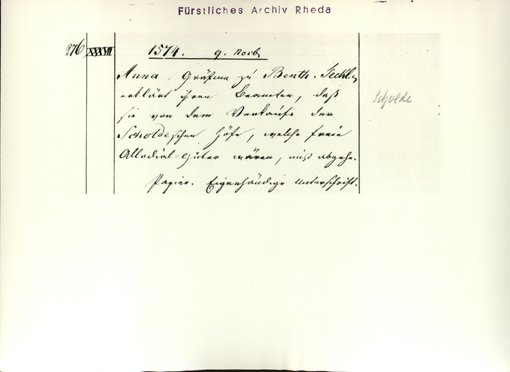 Fürstliches Archiv Rheda
276 XXXVII 1574. 9. Novb.
Anna, Gräfinn zu Benth. Teckl.
erklärt ihren Beamten, daß
sie von dem Verkaufe der
Scholdeschen Höfe, welche freie
Allodial-Güter wären, nicht abgehe.
Papier. Eigenhändige Unterschrift.
Scholde